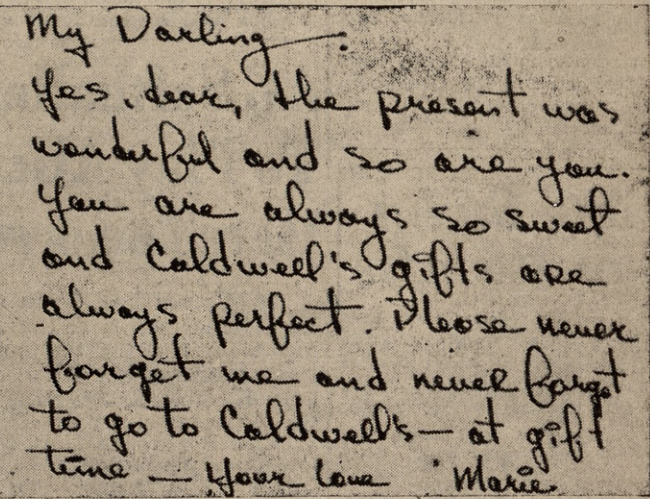 My Darling —.
Yes, dear, the present was
wonderful and so are you.
You are always so sweet
and Caldwell's gifts are
always perfect. Please never
forget me and never forget
to go to Caldwell's — at gift
time — Your love Marie.